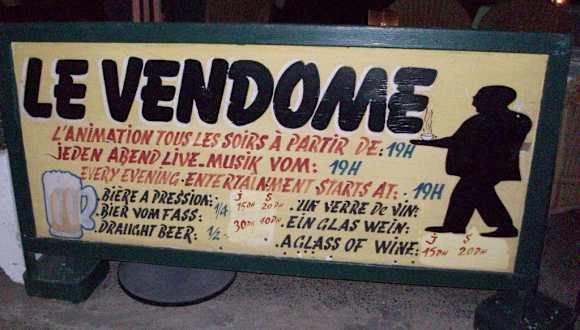 LE VENDOME
L'ANIMATION TOUS LES SOIRS À PARTIR DE: 19H
JEDEN ABEND LIVE-MUSIK VOM: 19H
EVERY EVENING-ENTERTAINMENT STARTS AT: 19H
J S
BIÈRE A PRESSION: 1/4 15DH 20DH
BIER VOM FASS:
DRAUGHT BEER: 1/2 30DH 40DH
.UN VERRE DE VIN:
.EIN GLAS WEIN:
.A GLASS OF WINE: 15DH 20DH
J S